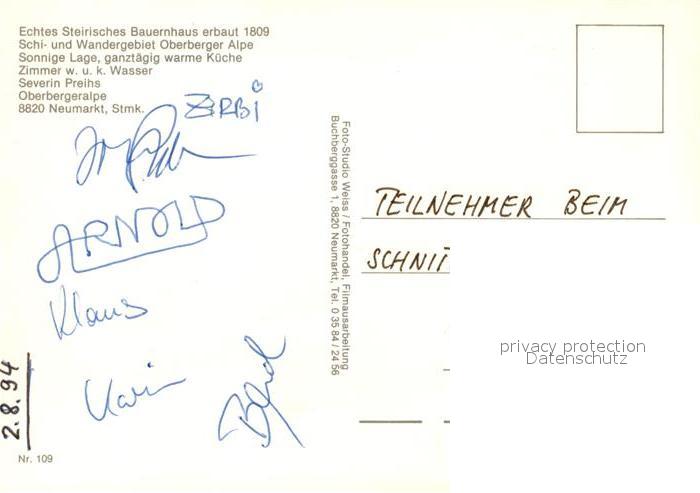 Echtes Steirisches Bauernhaus erbaut 1809
Schi- und Wandergebiet Oberberger Alpe
Sonnige Lage, ganztägig warme Küche
Zimmer w. u. k. Wasser
Severin Preihs
Oberbergeralpe
8820 Neumarkt, Stmk.
ZIRBI
ARNOLD
Klaus
Karin
Bernd
2.8.94
Nr. 109
Foto-Studio Weiss / Fotohandel, Filmausarbeitung
Buchberggasse 1, 8820 Neumarkt, Tel. 0 35 84 / 24 56
TEILNEHMER BEIM
SCHNIT
privacy protection
Datenschutz